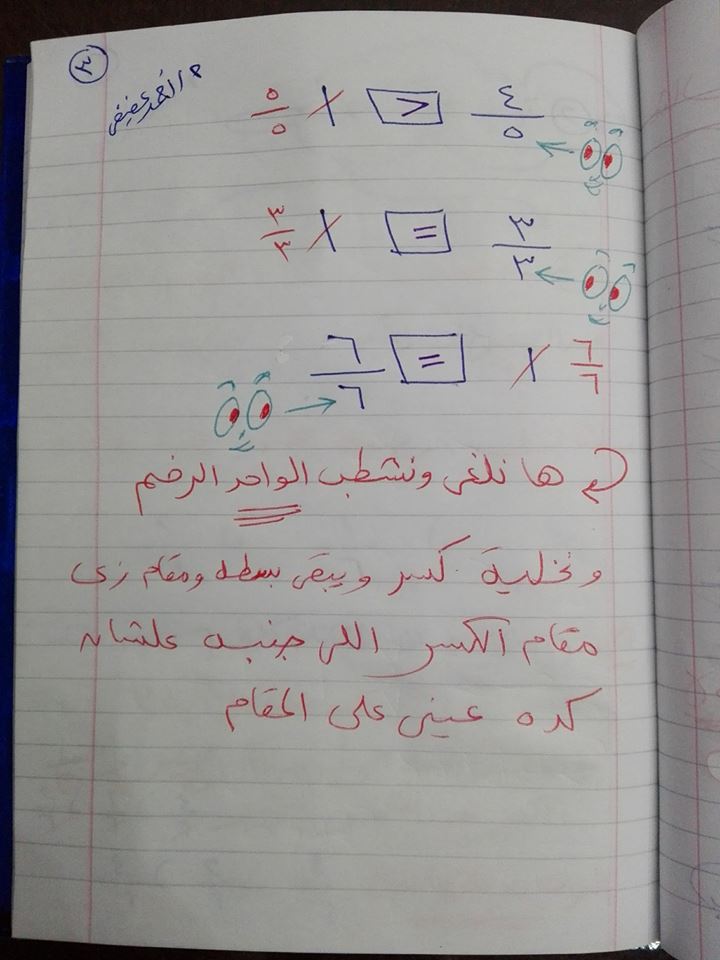 ٣
٤/٥ < ١ ٥/٥
٣/٣ = ١ ٣/٣
٦/٦ ١ = ٦/٦
ها نلغى ونشطب الواحد الرخم
ونخلية كسر ويبقى بسطه ومقامه زى
مقام الكسر اللى جنبه علشان
كده عينى على المقام